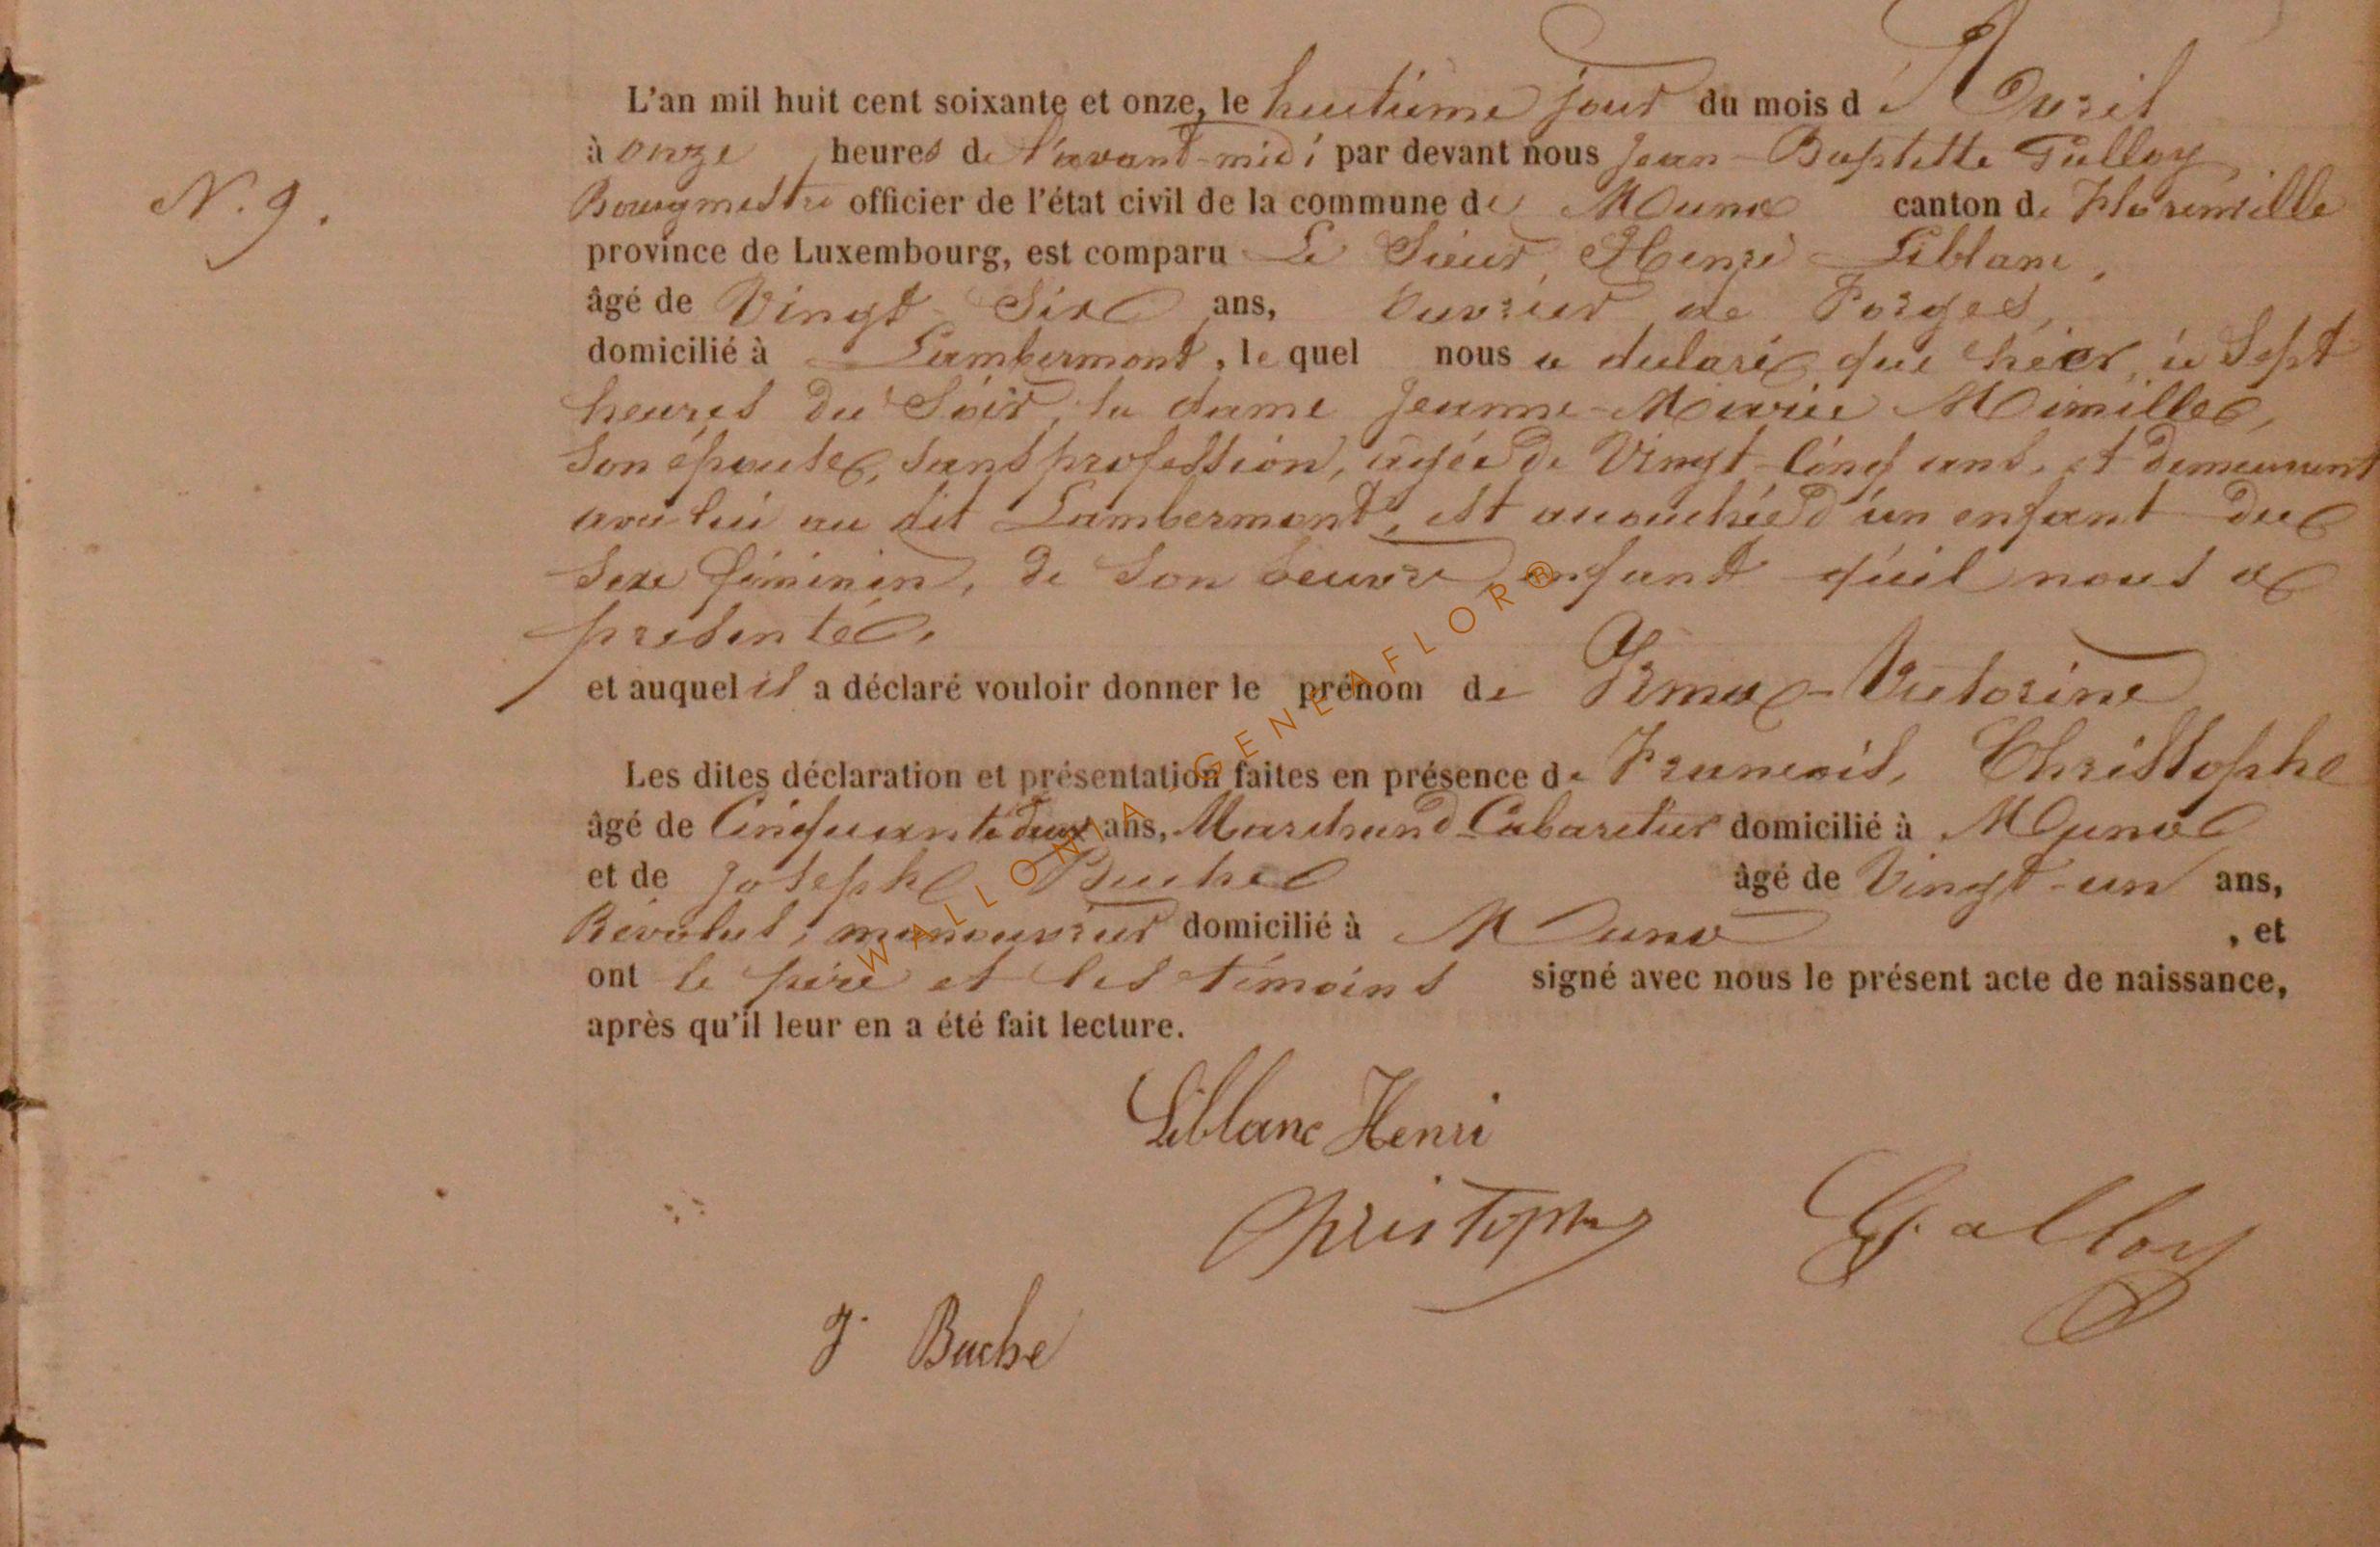 L'an mil huit cent soixante et onze, le huitième jour du mois d'Avril
à onze heures de l'avant-midi par devant nous Jean-Baptiste Galloy
N. 9.
Bourgmestre officier de l'état civil de la commune de Muno canton de Florenville
province de Luxembourg, est comparu Le Sieur, Henri Leblanc,
âgé de Vingt-Six ans, Ouvrier de Forges,
domicilié à Lambermont, le quel nous a déclaré que hier, à Sept
heures du Soir, la dame Jeanne-Marie Mimille,
Son épouse, Sans profession, agée de Vingt-Cinq ans, et demeurant
avec lui au dit Lambermont, est accouchée d'un enfant du
Sexe féminin, de Son enfant qu'il nous a
présenté,
et auquel il a déclaré vouloir donner le prénom de Irma-Victorine
Les dites déclaration et présentation faites en présence de François, Christophe
âgé de Cinquante deux ans, Marchand-Cabaretier domicilié à Muno
et de Joseph Buche âgé de Vingt-un ans,
Révolus, manouvrier domicilié à Muno, et
ont le père et les témoins signé avec nous le présent acte de naissance,
après qu'il leur en a été fait lecture.
Leblanc Henri
Christophe
Galloy
J. Buche
WALLONIA GENEAFLOR®